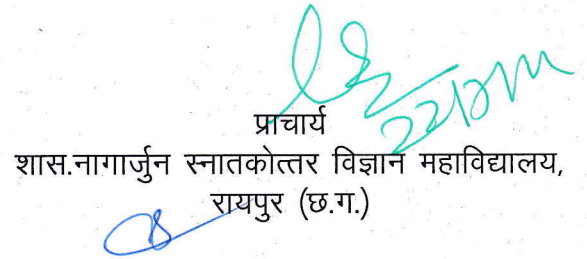 प्राचार्य
शास.नागार्जुन स्नातकोत्तर विज्ञान महाविद्यालय,
रायपुर (छ.ग.)